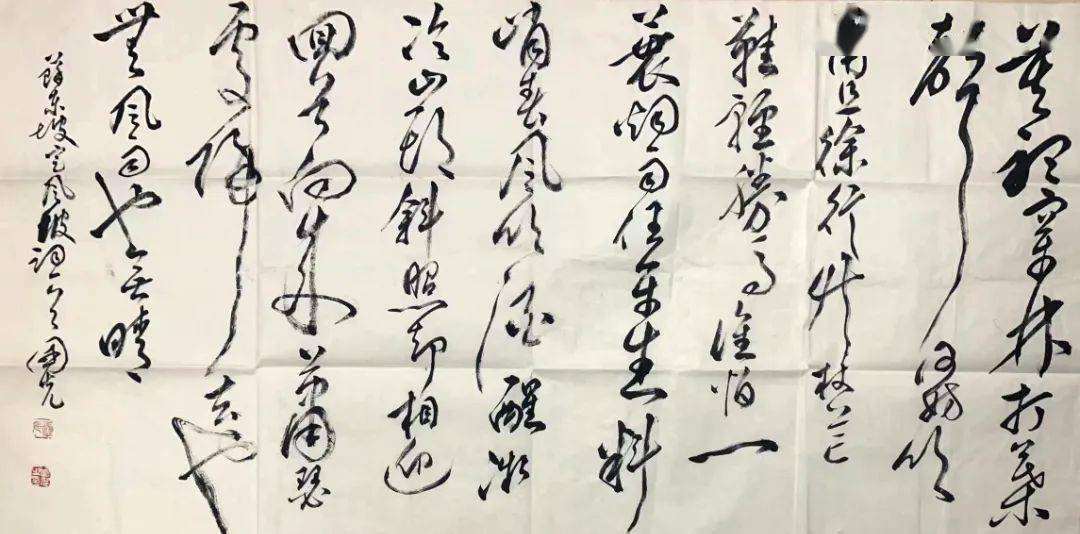 莫聽穿林打葉
聲何妨吟
嘯且徐行竹杖芒
鞋輕勝馬誰怕一
蓑烟雨任平生料
峭春風吹酒醒微
冷山頭斜照却相迎
回首向來蕭瑟
處歸去也
無風雨也無晴
蘇東坡定風波詞